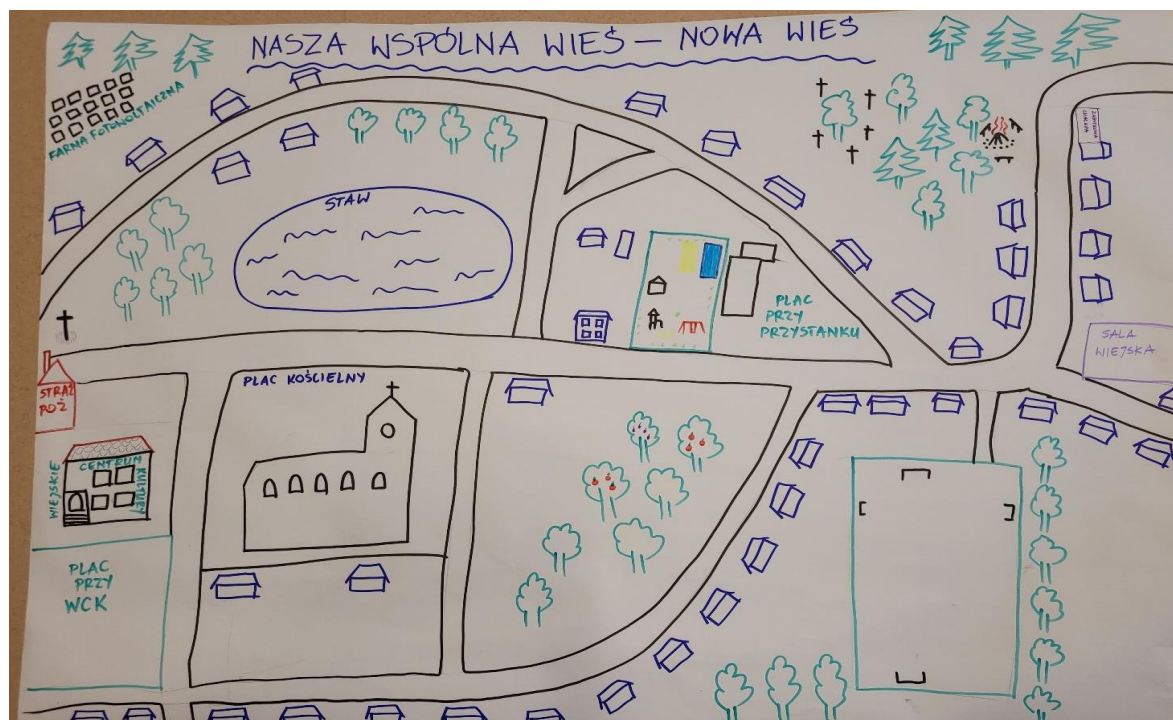 NASZA WSPÓLNA WIEŚ — NOWA WIEŚ
FARMA FOTOWOLTAICZNA
STAW
PLAC
PRZY
PRZYSTANKU
SALA
WIEJSKA
STRAŻ
POŻ
PLAC KOŚCIELNY
WIEJSKIE
CENTRUM
KULTURY
PLAC
PRZY
WCK